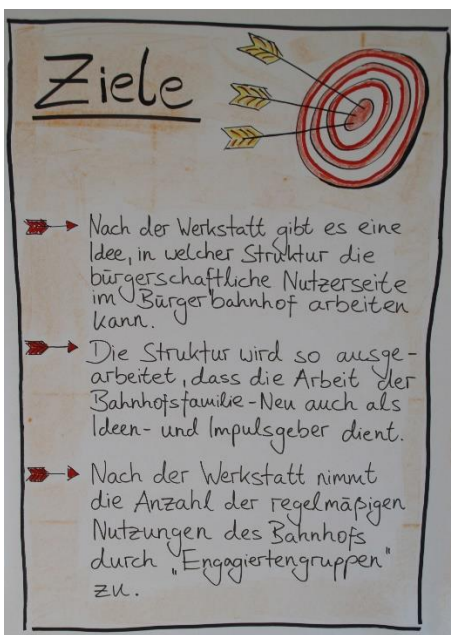 Ziele
Nach der Werkstatt gibt es eine
Idee, in welcher Struktur die
bürgerschaftliche Nutzerseite
im Bürgerbahnhof arbeiten
kann.
Die Struktur wird so ausge-
arbeitet, dass die Arbeit der
Bahnhofsfamilie-Neu auch als
Ideen- und Impulsgeber dient.
Nach der Werkstatt nimmt
die Anzahl der regelmäßigen
Nutzungen des Bahnhofs
durch „Engagiertengruppen"
zu.